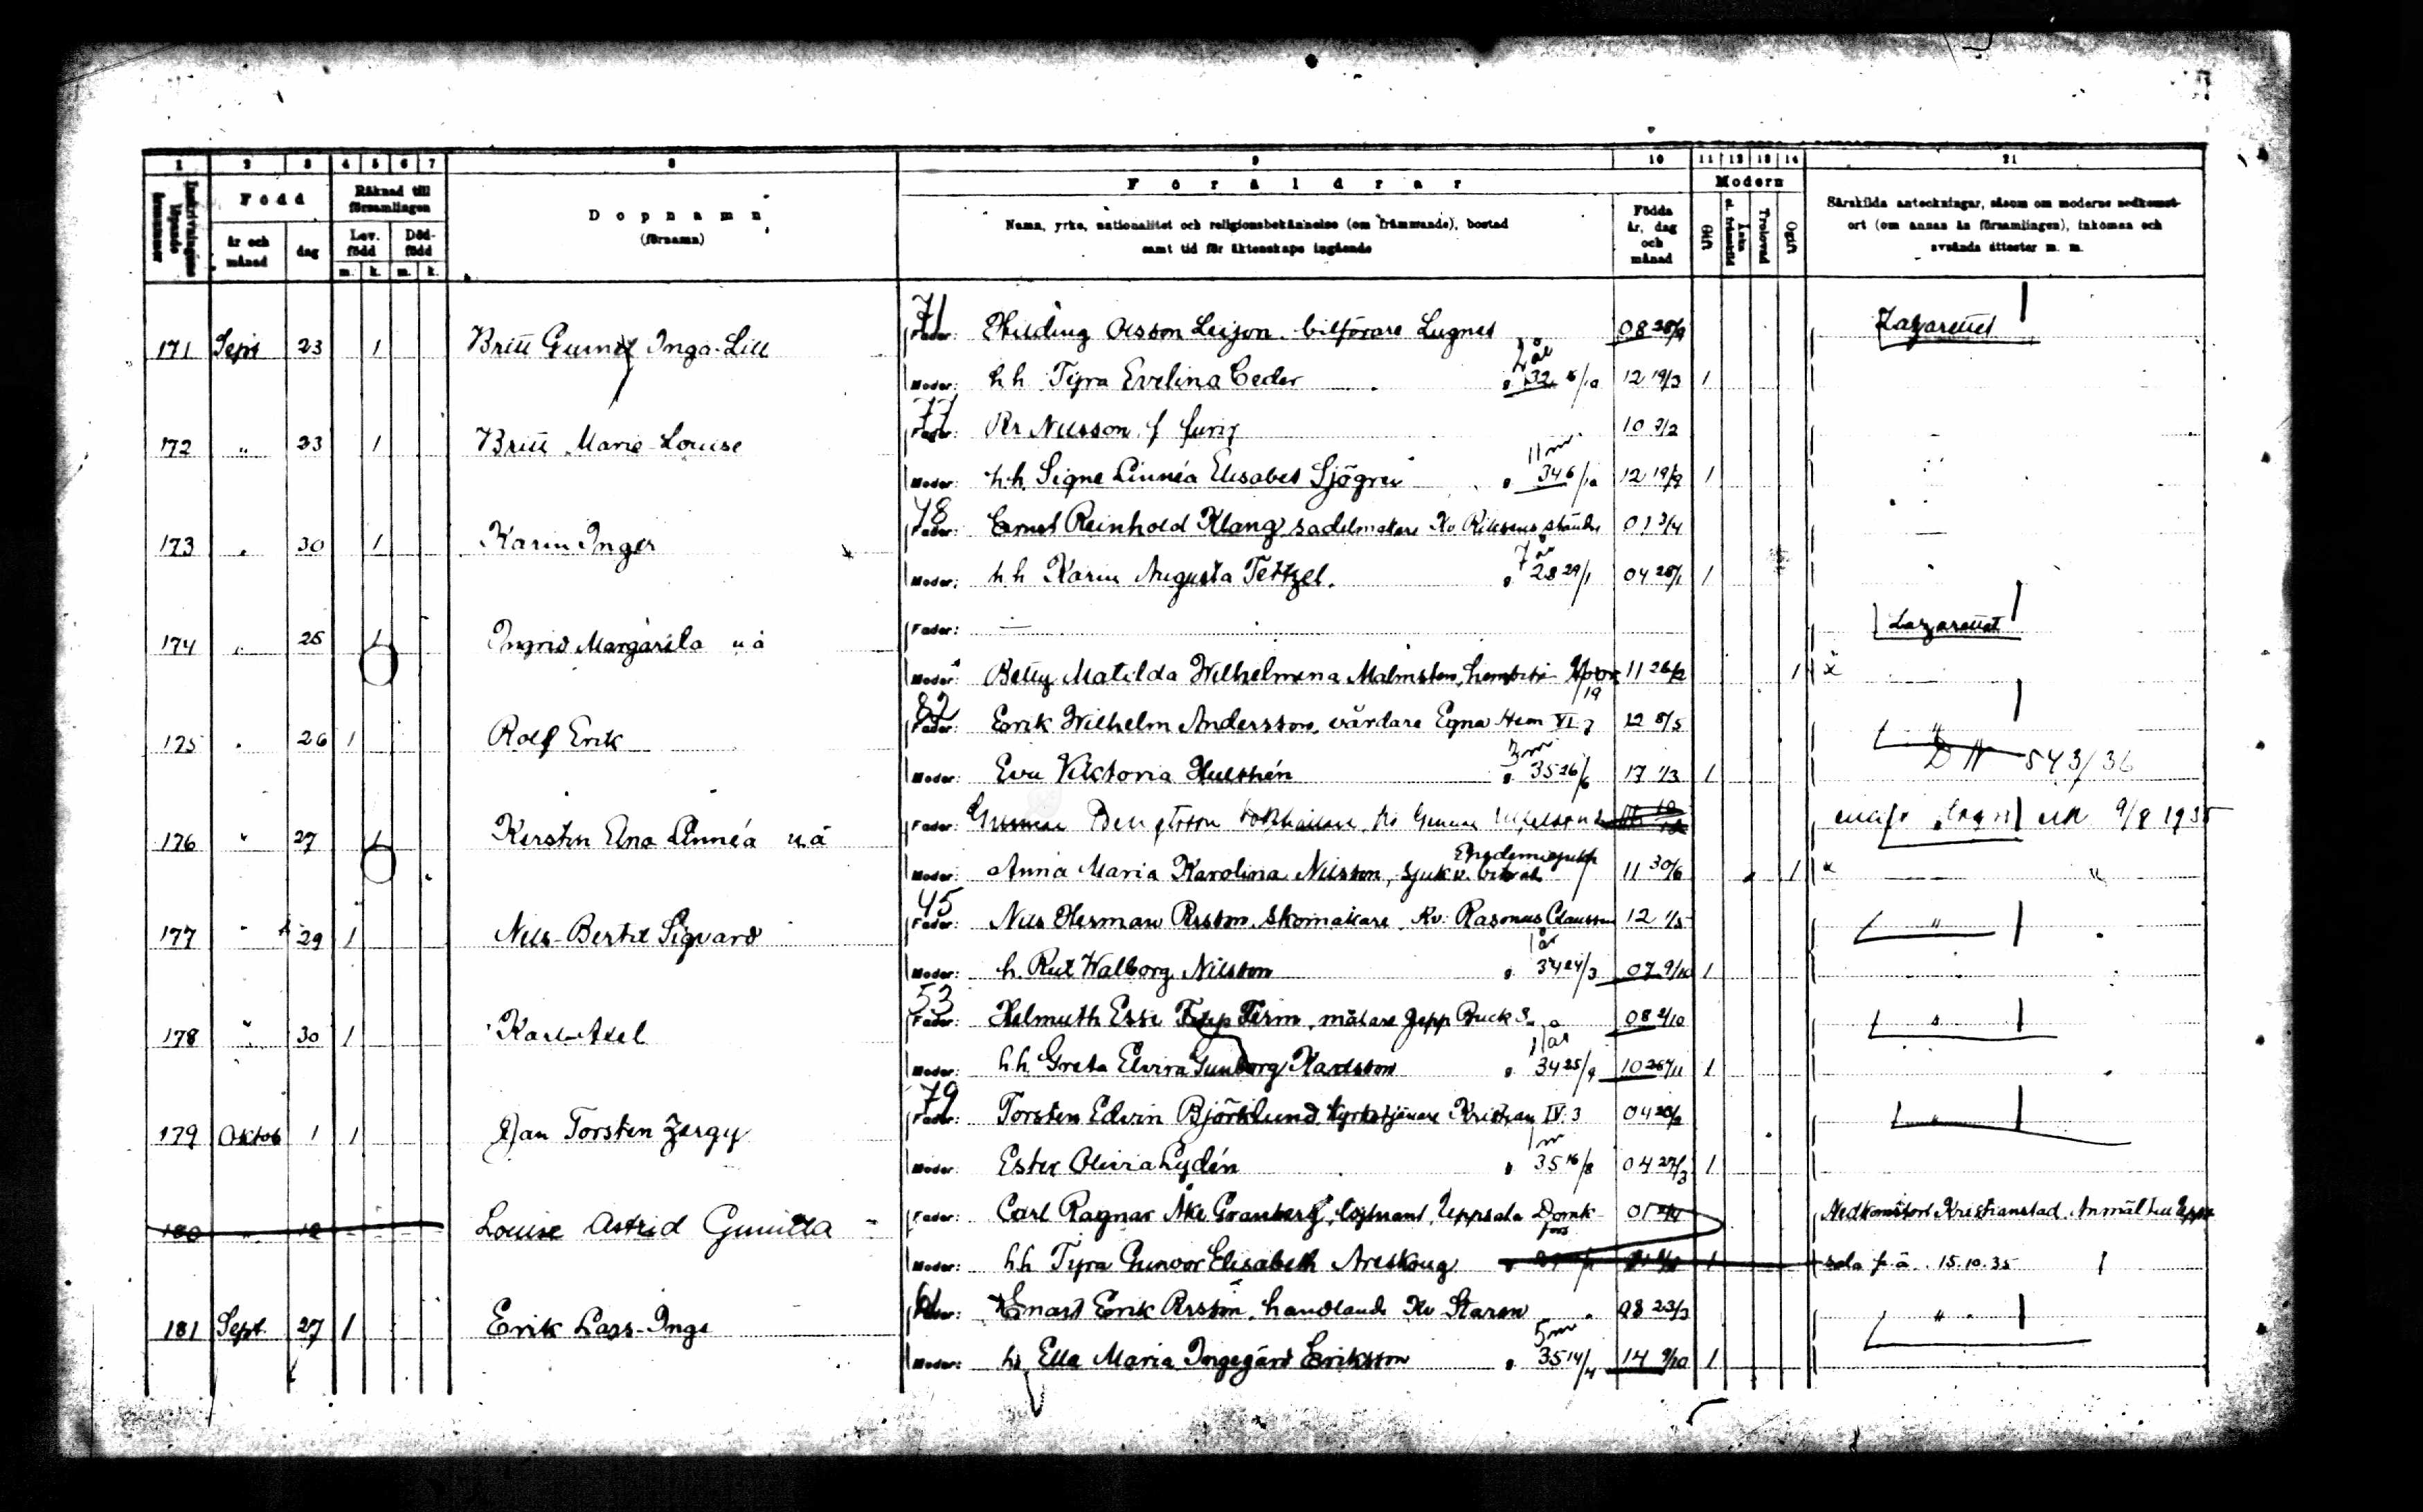 1 2 3 4 5 6 7 8 9 10 11 12 13 14 21
Inskrivningens löpande årsnummer
Född
År och månad
dag
Räknad till församlingen
Lev. född
Död-född
m. k. m. k.
Dopnamn
(förnamn)
Föräldrar
Namn, yrke, nationalitet och religionsbekännelse (om främmande), bostad
samt tid för äktenskaps ingående
Födda år, dag och månad
Modern
Gift
Trolovad
Ogift
Särskilda anteckningar, såsom om moderns nedkomst-
ort (om annan än församlingen), inkomna och
avsända attester m. m.
71
171 Sept 23 1 Britt Inga-Lill Fader: Hilding Olsson Leijon, bilförare Lugnet 08 Lazarettet
2 år
Moder: h h Tyra Evelina Ceder 32 12 19/3 1
77
172 " 23 1 Britt Marie-Louise Fader: Per Nilsson 10
11 m
Moder: h.h. Signe Linnéa Elisabet Sjögren 34 6/10 12 19/9 1
78
173 " 30 1 Karin Inger Fader: Ernst Reinhold Klang sadelmakare Kv. 
7 år
Moder: h h Karin Augusta Tettzel. 28 29/1 04 28/1 1
174 " 25 1 Ingrid Margareta u ä Fader: — Lazarettet
Moder: Betty Matilda Wilhelmina Malmsten, 11 26/2 1 x
82
175 " 26 1 Rolf Erik Fader: Erik Wilhelm Andersson, vårdare Egna Hem VI. 7 12 8/5 "
3 m
D N 543/36
Moder: Eva Viktoria Hulthén 35 26/6 17 1/3 1
176 " 27 1 Kerstin Elna Linnéa u ä Fader: Gunnar Bengtsson 9/8 1935
Moder: Anna Maria Karolina Nilsson, sjukv. bitr. 11 30/6 1 x "
45
177 " 29 1 Nils-Bertil Sigvard Fader: Nils Herman Persson, Skomakare. Kv: Rasmus Clausson 12 1/5 "
1 år
Moder: h. Rut Walborg Nilsson 34 24/3 07 1
53
178 " 30 1 Karl-Axel Fader: Helmuth Term, målare Jepp Buck 3 08 "
1 år
Moder: h h Greta Elvira Gunborg Karlsson 34 25/9 10 1
79
179 Oktob 1 1 Jan Torsten Fader: Torsten Edvin Björklund, kyrkotjänare Kristian IV. 3 04 "
1 m
Moder: Ester Olivia Lydén 35 16/8 04 27/3 1
180 " 12 Louise Astrid Gunilla Fader: Carl Ragnar Åke Granberg, löjtnant, Uppsala Domk förs Nedkomstort Kristianstad. Anmält till Upp-
Moder: h h Tyra Gunvor Elisabeth Areskoug 1 sala f ö. 15.10.35
181 Sept. 27 1 Erik Lars-Inge Fader: Erik Persson, handlande Kv Staren 08 23/3 "
5 m
Moder: h Ella Maria Ingegärd Eriksson 35 14/4 14 9/10 1